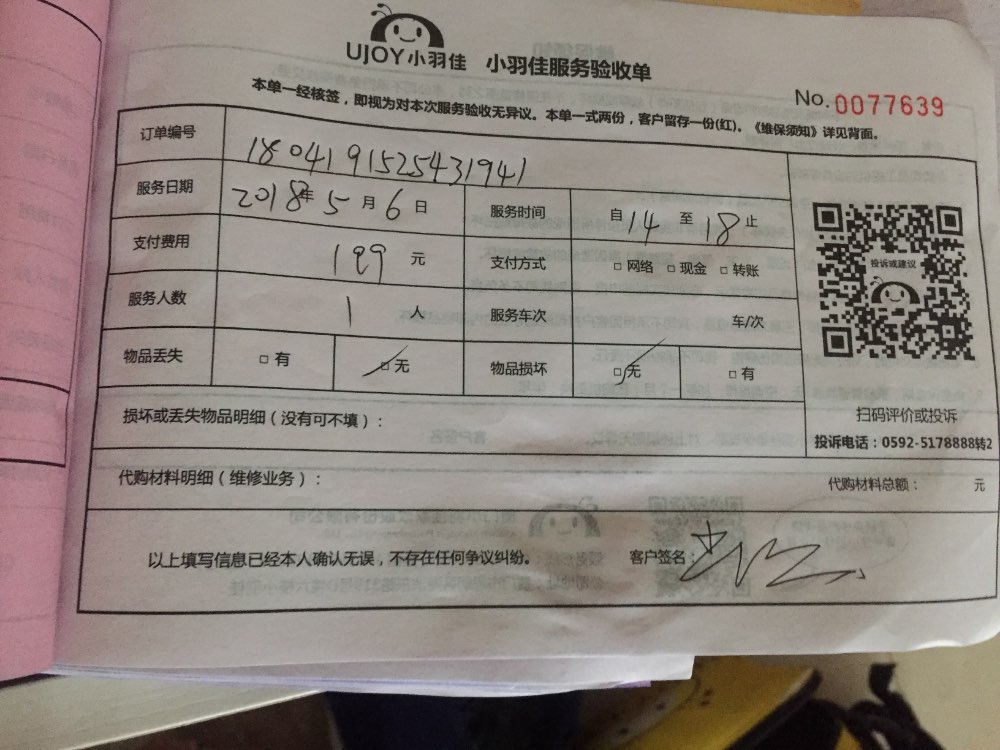 UJOY小羽佳 小羽佳服务验收单
No. 0077639
本单一经核签，即视为对本次服务验收无异议。本单一式两份，客户留存一份(红)。《维保须知》详见背面。
订单编号 1804191525431941
服务日期 2018年5月6日 服务时间 自14至18止
支付费用 199 元 支付方式 □ 网络 □ 现金 □ 转账
服务人数 1 人 服务车次 车/次
物品丢失 □ 有 □ 无 物品损坏 □ 无 □ 有
投诉或建议
扫码评价或投诉
投诉电话：0592-5178888转2
损坏或丢失物品明细（没有可不填）：
代购材料明细（维修业务）： 代购材料总额： 元
以上填写信息已经本人确认无误，不存在任何争议纠纷。 客户签名：